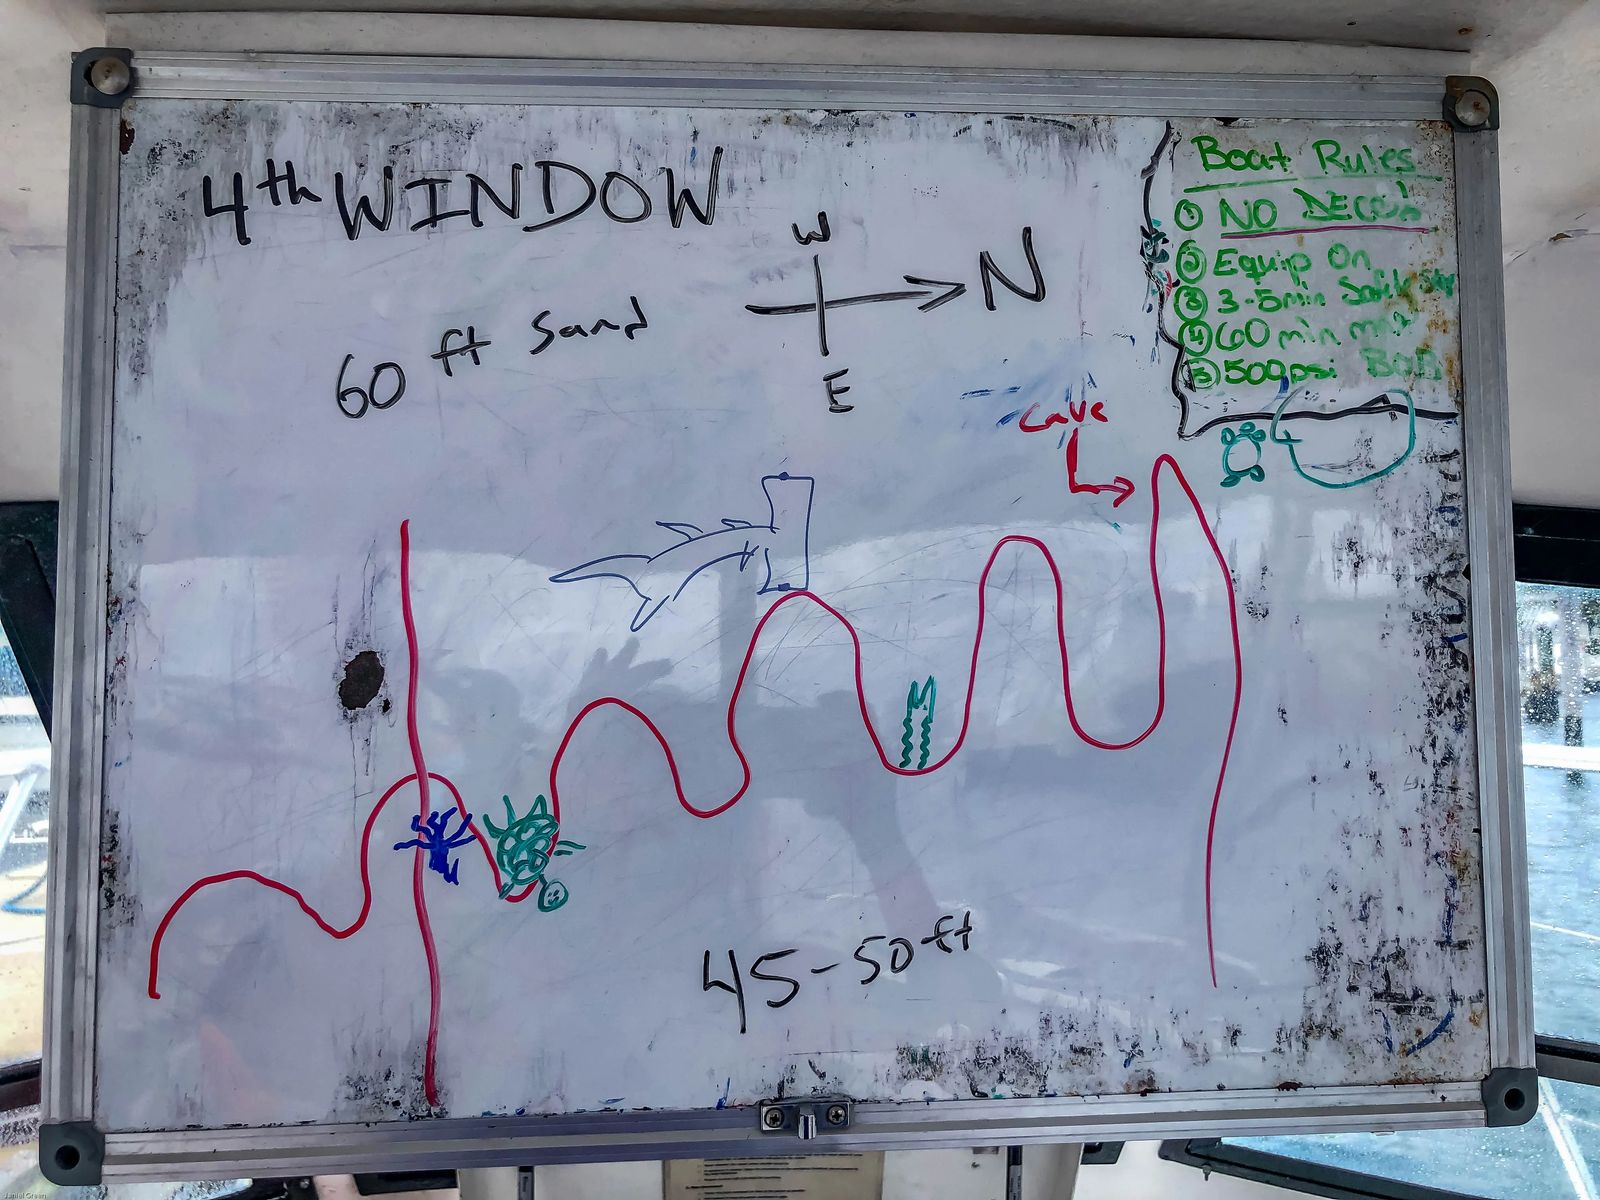 4th WINDOW
60 ft Sand
W
N
E
Boat Rules
① NO DECO!
② Equip On
③ 3-5min Safety Stop
④ 60 min max
⑤ 500psi BOB
cave
45-50ft
Janiel Green